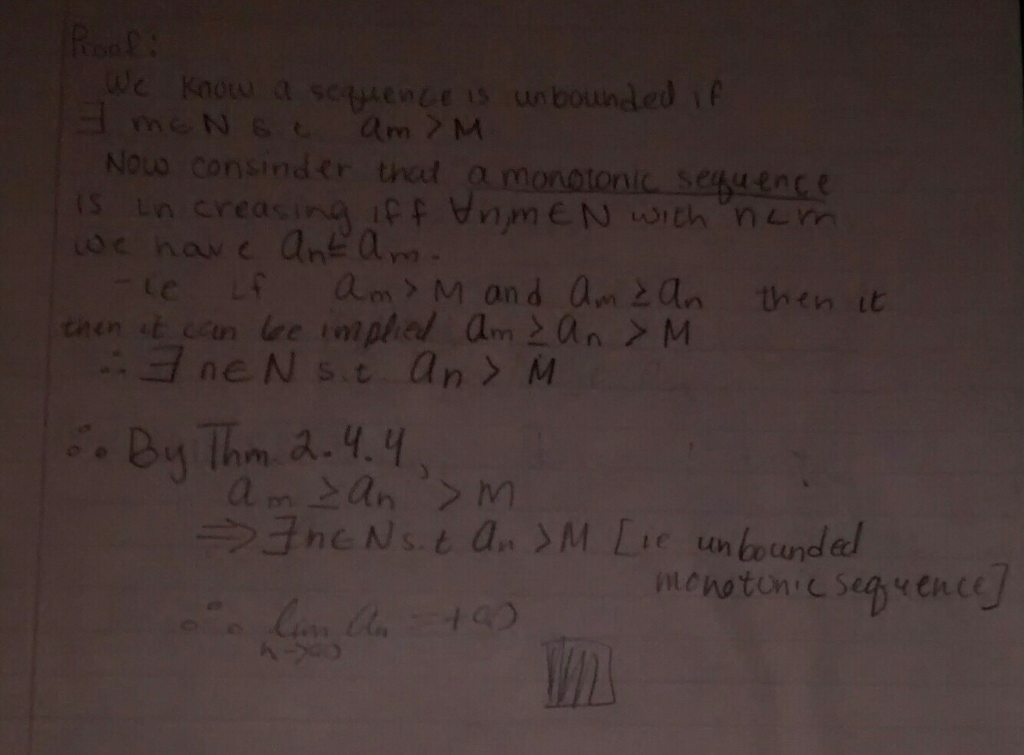 Proof:
We know a sequence is unbounded if
∃ m∈N s.t am > M
Now consinder that a monotonic sequence
is increasing iff ∀n,m∈N with n<m
we have an ≤ am.
-ie if am > M and am ≥ an then it
then it can be implied am ≥ an > M
∴ ∃ n∈N s.t an > M
∴ By Thm 2.4.4,
am ≥ an > M
⇒ ∃n∈N s.t an > M [ie unbounded
monotonic sequence]
∴ lim an = +∞
n→∞